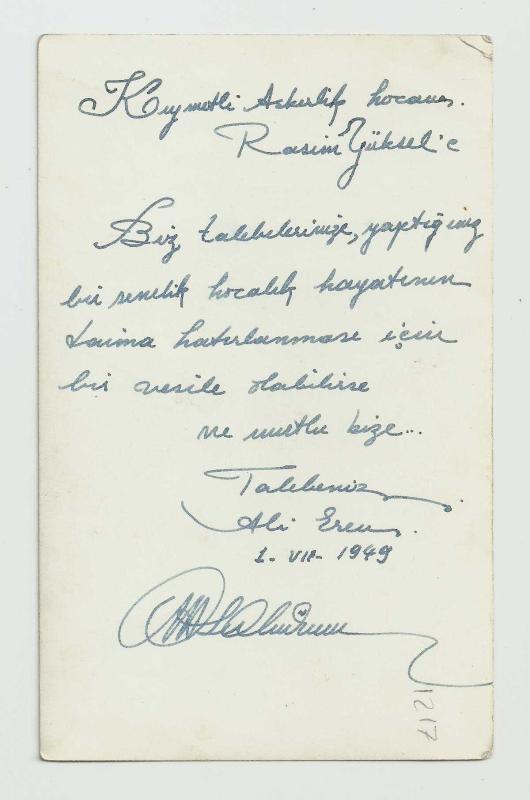 Kıymetli Askerlik hocamız.
Rasim Yüksel'e
Biz talebelerinize, yaptığınız
bir senelik hocalık hayatının
daima hatırlanması için
bir vesile olabilirse
ne mutlu bize...
Talebeniz
Ali Eren.
1-VII-1949
1217